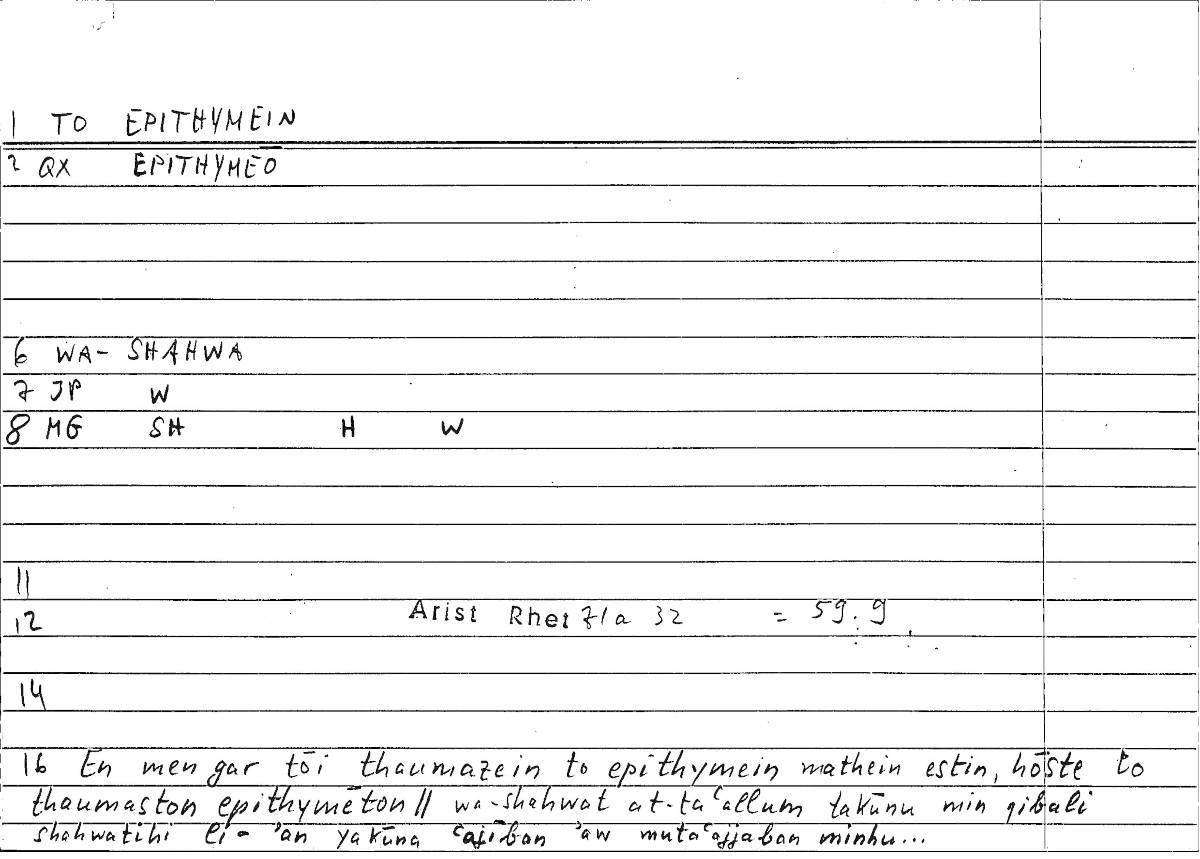 1 TO EPITHYMEIN
2 QX EPITHYMEŌ
6 WA- SHAHWA
7 JP W
8 MG SH H W
11
12 Arist Rhet 71a 32 = 59.9
14
16 En men gar tōi thaumazein to epithymein mathein estin, hōste to
thaumaston epithymēton // wa-shahwat at-taʿallum takūnu min qibali
shahwatihi li-ʾan yakūna ʿajīban ʾaw mutaʿajjaban minhu...